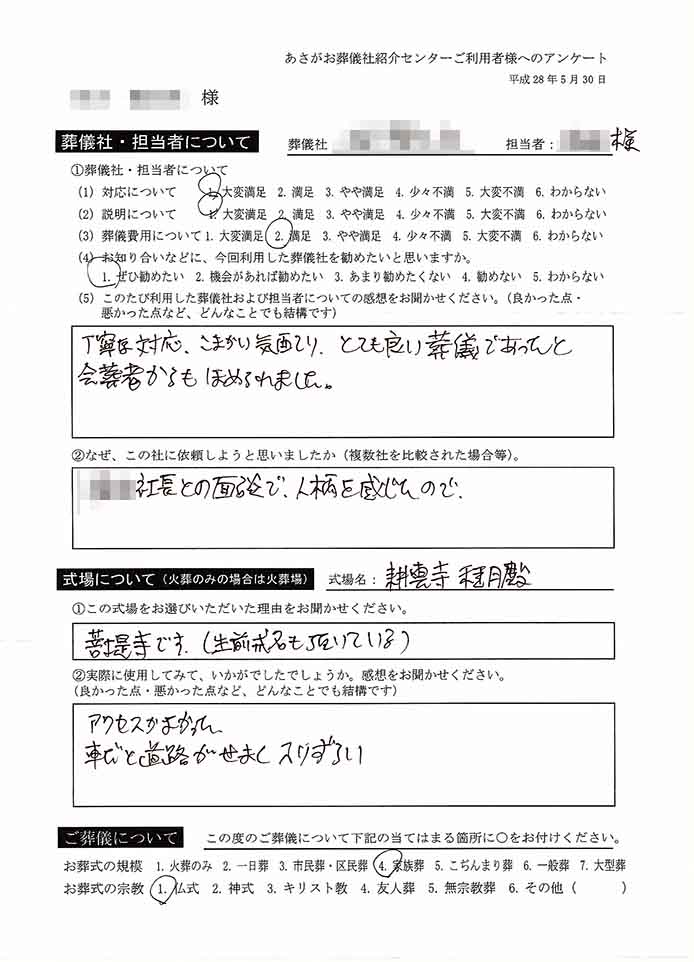 あさがお葬儀社紹介センターご利用者様へのアンケート
平成28年5月30日
様
葬儀社・担当者について 葬儀社 担当者： 様
①葬儀社・担当者について
(1) 対応について 1. 大変満足 2. 満足 3. やや満足 4. 少々不満 5. 大変不満 6. わからない
(2) 説明について 1. 大変満足 2. 満足 3. やや満足 4. 少々不満 5. 大変不満 6. わからない
(3) 葬儀費用について 1. 大変満足 2. 満足 3. やや満足 4. 少々不満 5. 大変不満 6. わからない
(4) お知り合いなどに、今回利用した葬儀社を勧めたいと思いますか。
1. ぜひ勧めたい 2. 機会があれば勧めたい 3. あまり勧めたくない 4. 勧めない 5. わからない
(5) このたび利用した葬儀社および担当者についての感想をお聞かせください。（良かった点・
悪かった点など、どんなことでも結構です）
丁寧な対応、こまかい気配り、とても良い葬儀であったと
会葬者からもほめられました。
②なぜ、この社に依頼しようと思いましたか（複数社を比較された場合等）。
社長との面談で、人柄を感じたので、
式場について（火葬のみの場合は火葬場） 式場名： 耕雲寺
①この式場をお選びいただいた理由をお聞かせください。
菩提寺です。（生前戒名も頂いている）
②実際に使用してみて、いかがでしたでしょうか。感想をお聞かせください。
（良かった点・悪かった点など、どんなことでも結構です）
アクセスがよかった
車だと道路がせまく入りずらい
ご葬儀について この度のご葬儀について下記の当てはまる箇所に○をお付けください。
お葬式の規模 1. 火葬のみ 2. 一日葬 3. 市民葬・区民葬 4. 家族葬 5. こぢんまり葬 6. 一般葬 7. 大型葬
お葬式の宗教 1. 仏式 2. 神式 3. キリスト教 4. 友人葬 5. 無宗教葬 6. その他（ ）